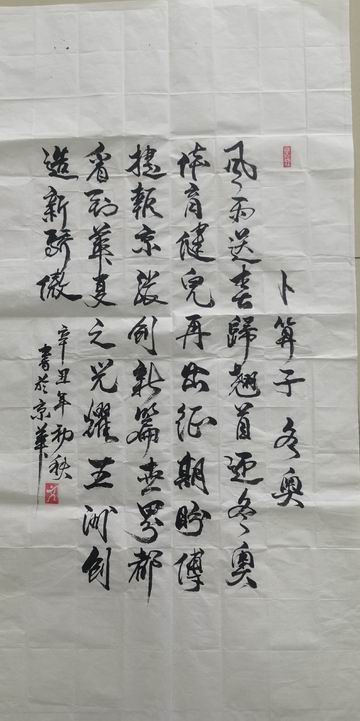 卜算子 冬奧
風雨送春歸翹首迎冬奧
体育健兒再出征期盼傳
捷報京張創新篇世界都
看到華夏之光耀五洲創
造新驕傲
辛丑年初秋
書於京華